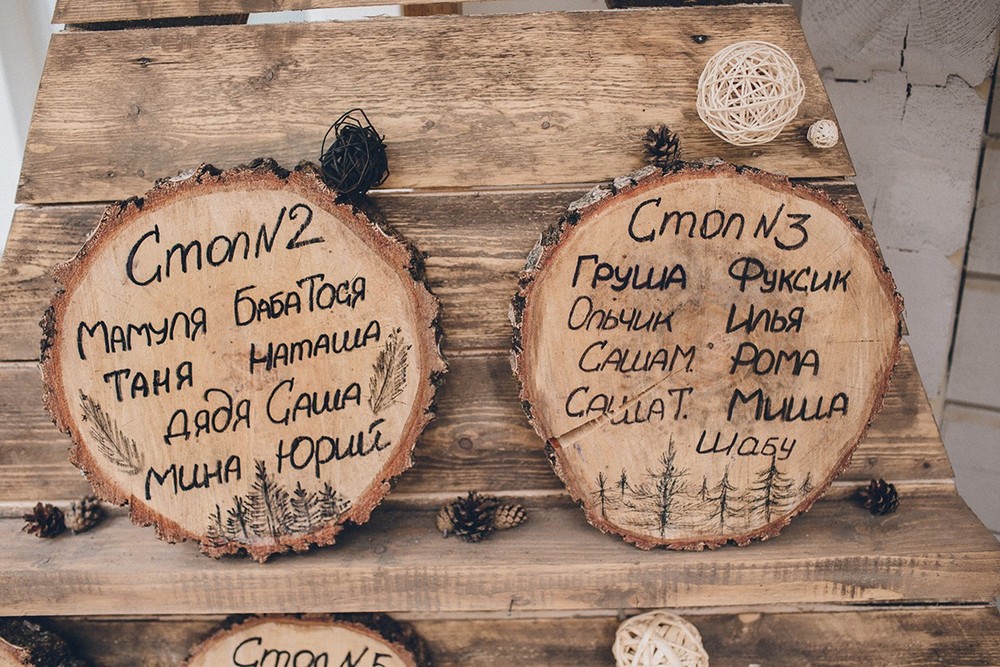 Стол N2
Мамуля Баба Тося
Таня Наташа
дядя Саша
Мина Юрий
Стол N3
Груша Фуксик
Ольчик Илья
Саша М. Рома
Саша Т. Миша
Шабу
Стол N5